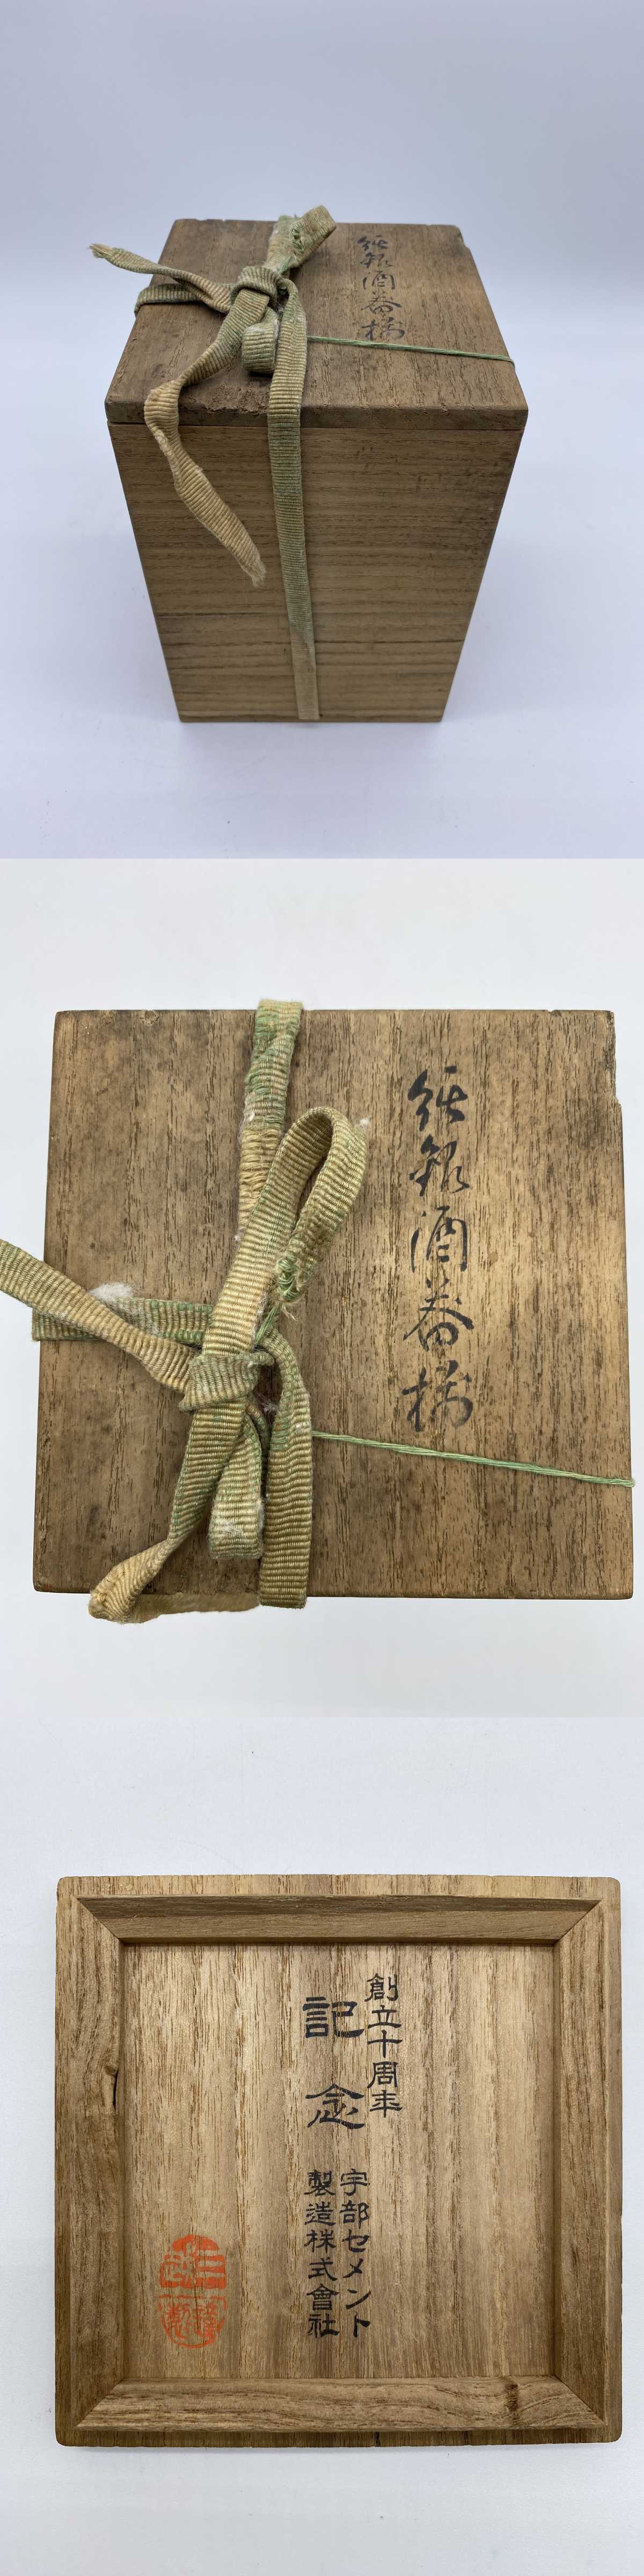 純銀酒器揃
純銀酒器揃
創立十周年
記念
宇部セメント
製造株式會社